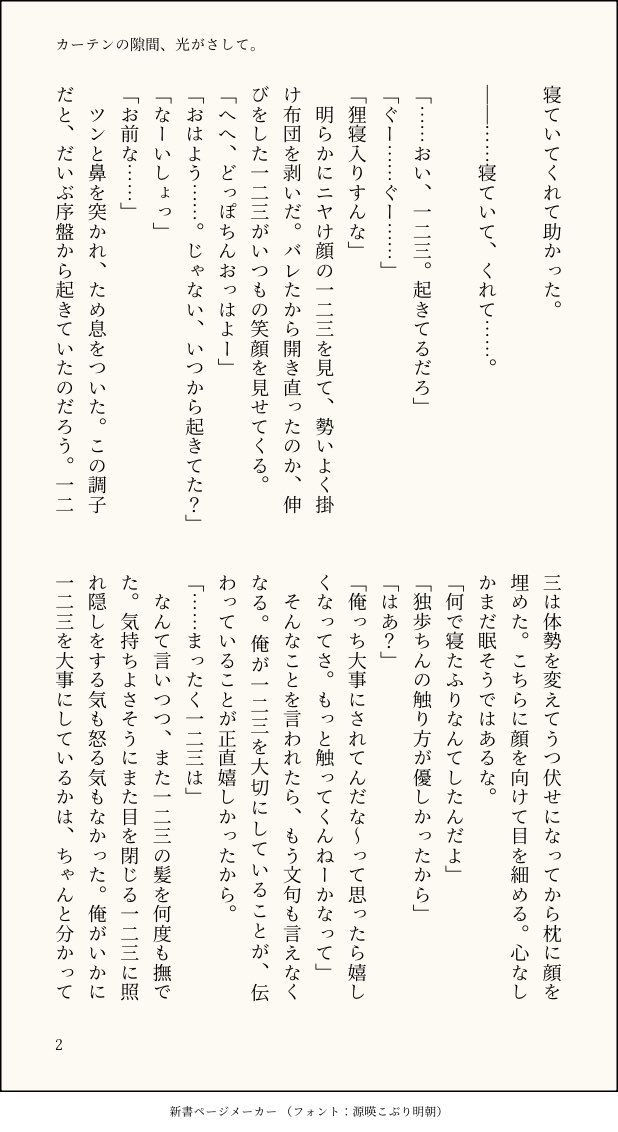 カーテンの隙間、光がさして。
寝ていてくれて助かった。
――……寝ていて、くれて……。
「……おい、一二三。起きてるだろ」
「ぐー……ぐー……」
「狸寝入りすんな」
明らかにニヤけ顔の一二三を見て、勢いよく掛
け布団を剥いだ。バレたから開き直ったのか、伸
びをした一二三がいつもの笑顔を見せてくる。
「へへ、どっぽちんおっはよー」
「おはよう……。じゃない、いつから起きてた？」
「なーいしょっ」
「お前な……」
ツンと鼻を突かれ、ため息をついた。この調子
だと、だいぶ序盤から起きていたのだろう。一二
三は体勢を変えてうつ伏せになってから枕に顔を
埋めた。こちらに顔を向けて目を細める。心なし
かまだ眠そうではあるな。
「何で寝たふりなんてしたんだよ」
「独歩ちんの触り方が優しかったから」
「はあ？」
「俺っち大事にされてんだな～って思ったら嬉し
くなってさ。もっと触ってくんねーかなって」
そんなことを言われたら、もう文句も言えなく
なる。俺が一二三を大切にしていることが、伝
わっていることが正直嬉しかったから。
「……まったく一二三は」
なんて言いつつ、また一二三の髪を何度も撫で
た。気持ちよさそうにまた目を閉じる一二三に照
れ隠しをする気も怒る気もなかった。俺がいかに
一二三を大事にしているかは、ちゃんと分かって
2
新書ページメーカー（フォント：源暎こぶり明朝）